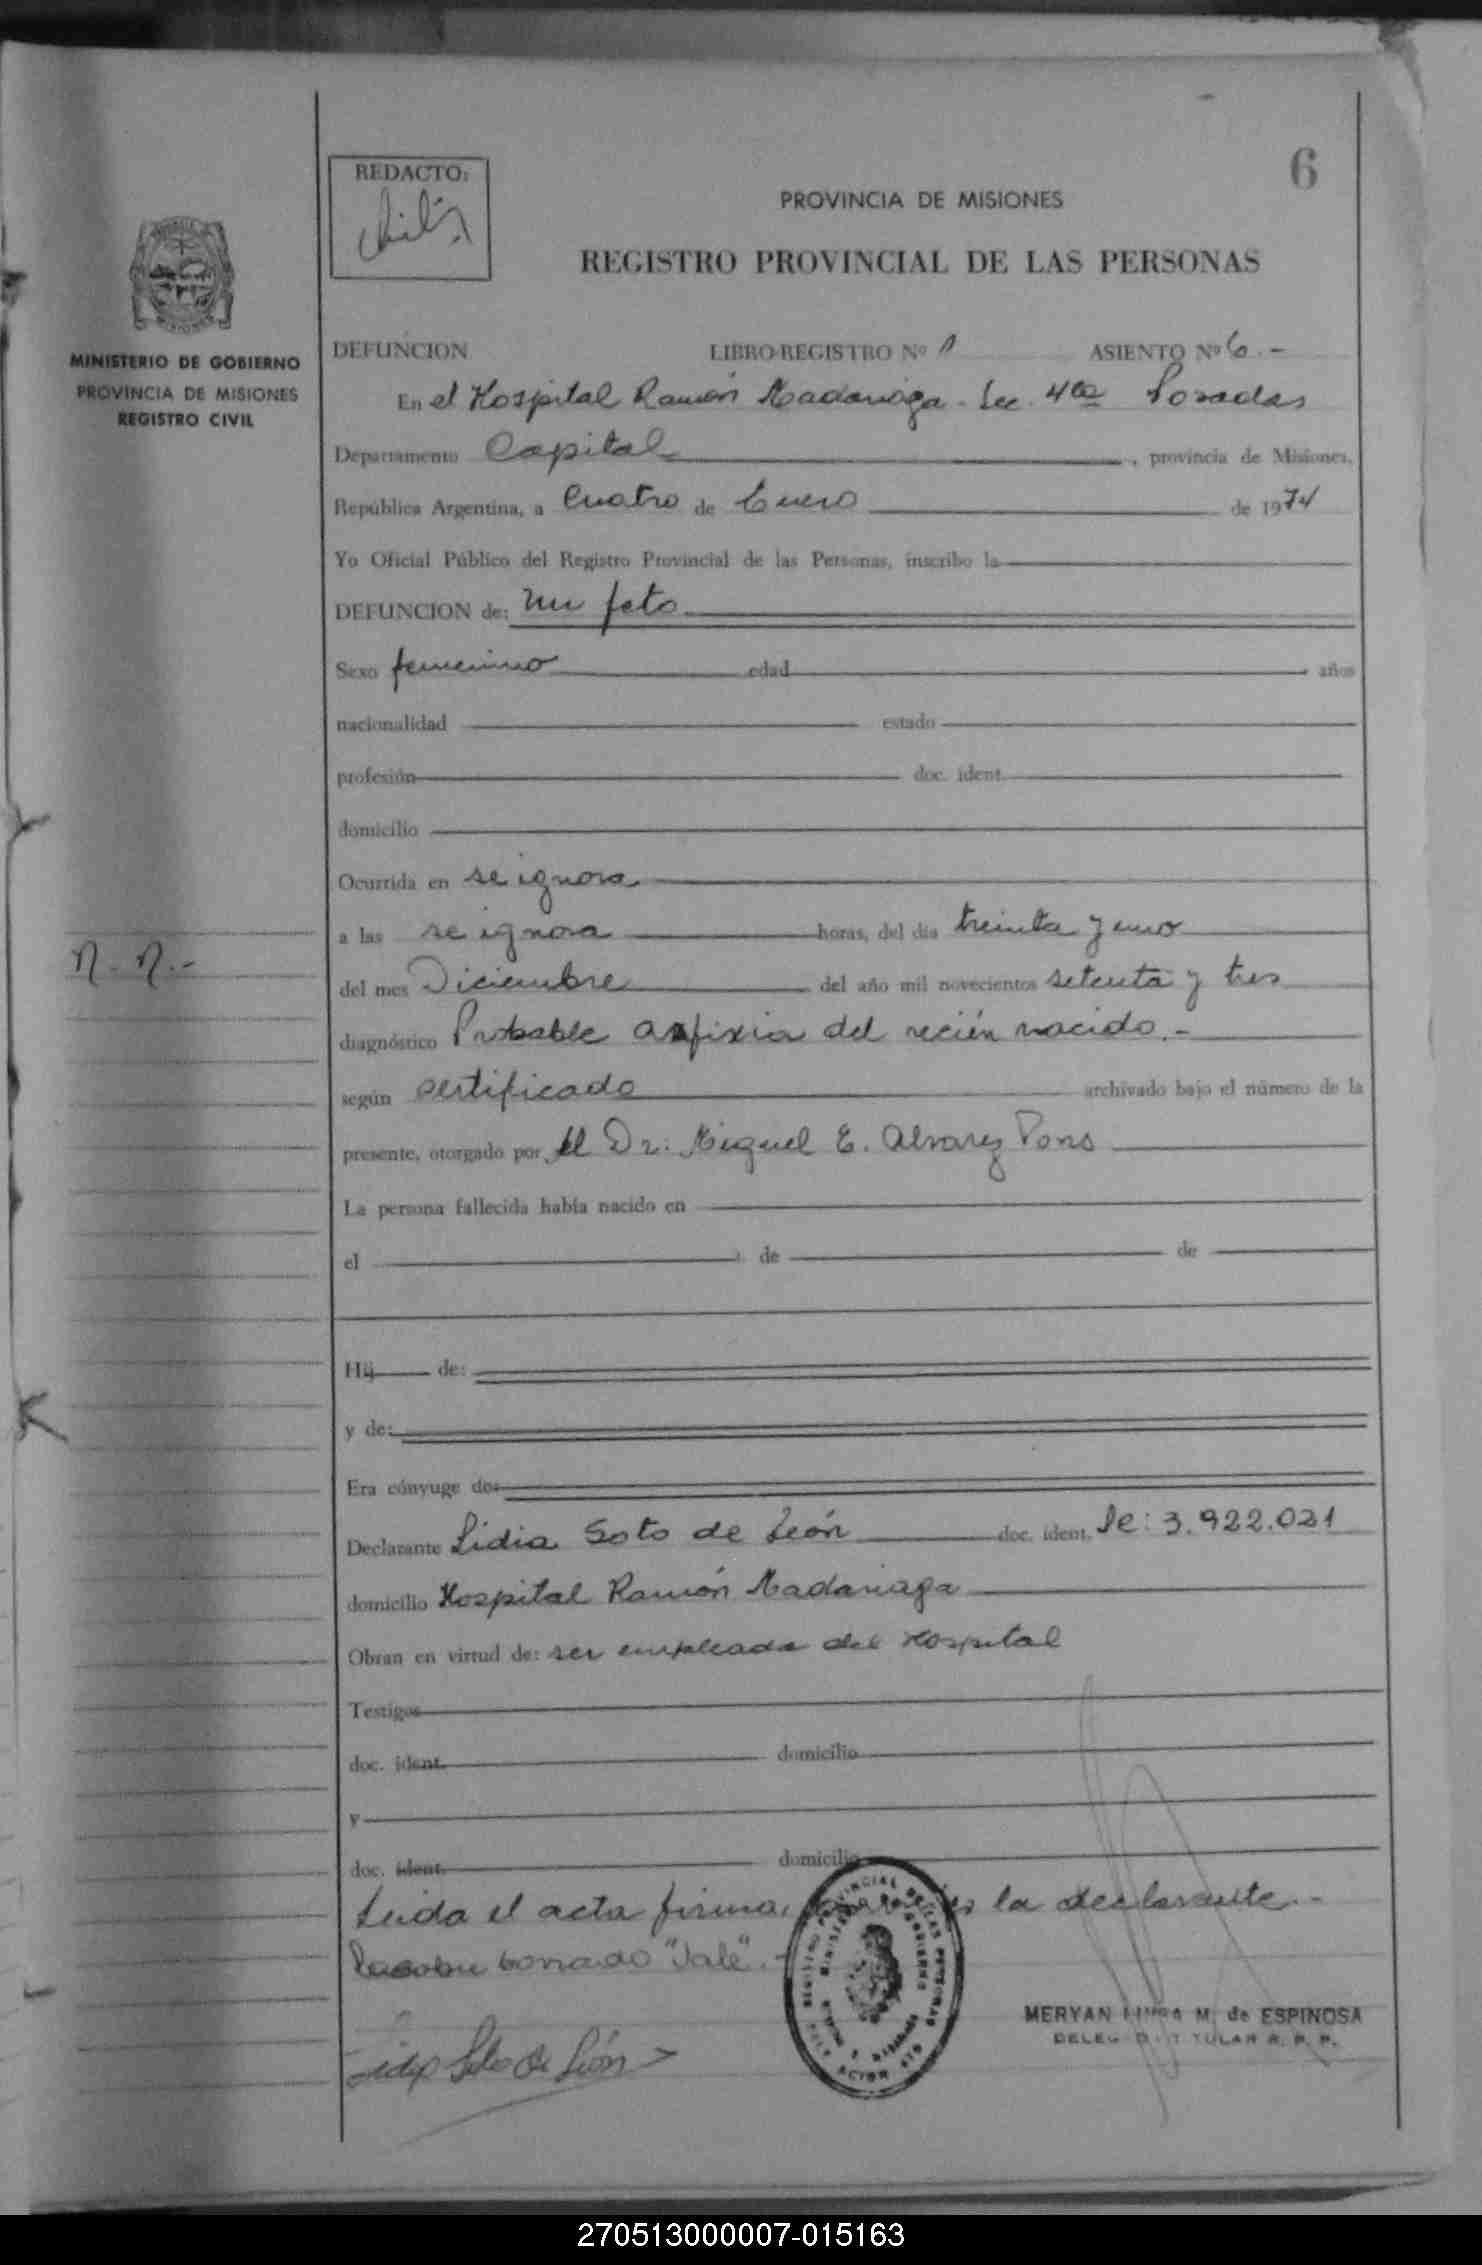 6
REDACTO:
PROVINCIA DE MISIONES
REGISTRO PROVINCIAL DE LAS PERSONAS
MISIONES
MINISTERIO DE GOBIERNO
PROVINCIA DE MISIONES
REGISTRO CIVIL
DEFUNCION LIBRO-REGISTRO Nº 1 ASIENTO Nº 6.-
En el Hospital Ramón Madariaga - Sec. 4ta Posadas
Departamento Capital, provincia de Misiones,
República Argentina, a Cuatro de Enero de 1974
Yo Oficial Público del Registro Provincial de las Personas, inscribo la
DEFUNCION de: Un feto
Sexo femenino edad años
nacionalidad estado
profesión doc. ident.
domicilio
Ocurrida en se ignora
a las se ignora horas, del día treinta y uno
N. N.-
del mes Diciembre del año mil novecientos setenta y tres
diagnóstico Probable asfixia del recién nacido.-
según certificado archivado bajo el número de la
presente, otorgado por el Dr. Miguel E. Alvarez Pons
La persona fallecida había nacido en
el de de
Hij de:
y de:
Era cónyuge de:
Declarante Lidia Soto de León doc. ident. Lc: 3.922.021
domicilio Hospital Ramón Madariaga
Obran en virtud de: ser empleada del Hospital
Testigos
doc. ident. domicilio
y
doc. ident. domicilio
Leida el acta firma, la declarante.-
borrado "Vale".-
MERYAN LUISA M. de ESPINOSA
DELEGADA TITULAR R. P. P.
Lidia Soto de León
270513000007-015163